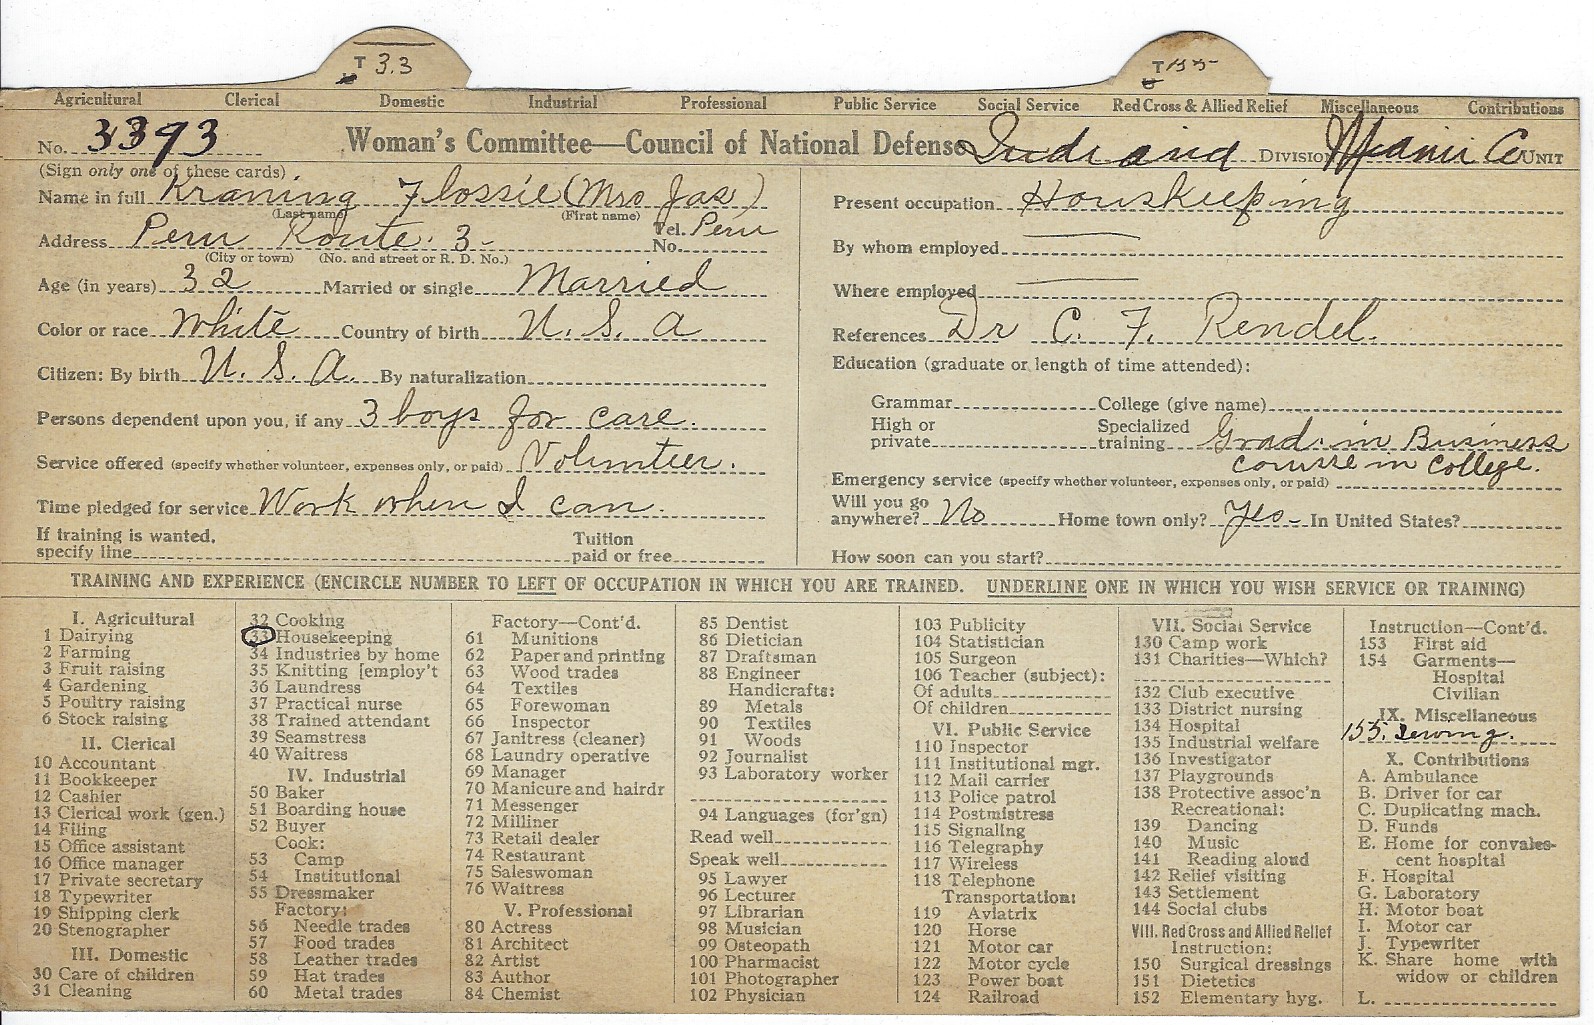 T 3.3
T 155
Agricultural Clerical Domestic Industrial Professional Public Service Social Service Red Cross & Allied Relief Miscellaneous Contributions
No. 3393 Woman's Committee—Council of National Defense Indiana DIVISION Miami Co UNIT
(Sign only one of these cards)
Name in full Kraning Flossie (Mrs Jas)
(Last name) (First name)
Address Peru Route. 3- Tel. No. Peru
(City or town) (No. and street or R. D. No.)
Age (in years) 32 Married or single Married
Color or race White Country of birth U. S. A
Citizen: By birth U. S. A. By naturalization
Persons dependent upon you, if any 3 boys for care.
Service offered (specify whether volunteer, expenses only, or paid) Volunteer.
Time pledged for service Work when I can.
If training is wanted, specify line Tuition paid or free
Present occupation Houskeeping
By whom employed
Where employed
References Dr C. F. Rendel.
Education (graduate or length of time attended):
Grammar College (give name)
High or private Specialized training Grad. in Business
course in College.
Emergency service (specify whether volunteer, expenses only, or paid)
Will you go anywhere? No Home town only? Yes- In United States?
How soon can you start?
TRAINING AND EXPERIENCE (ENCIRCLE NUMBER TO LEFT OF OCCUPATION IN WHICH YOU ARE TRAINED. UNDERLINE ONE IN WHICH YOU WISH SERVICE OR TRAINING)
I. Agricultural
1 Dairying
2 Farming
3 Fruit raising
4 Gardening
5 Poultry raising
6 Stock raising
II. Clerical
10 Accountant
11 Bookkeeper
12 Cashier
13 Clerical work (gen.)
14 Filing
15 Office assistant
16 Office manager
17 Private secretary
18 Typewriter
19 Shipping clerk
20 Stenographer
III. Domestic
30 Care of children
31 Cleaning
32 Cooking
33 Housekeeping
34 Industries by home
35 Knitting [employ't
36 Laundress
37 Practical nurse
38 Trained attendant
39 Seamstress
40 Waitress
IV. Industrial
50 Baker
51 Boarding house
52 Buyer
Cook:
53 Camp
54 Institutional
55 Dressmaker
Factory:
56 Needle trades
57 Food trades
58 Leather trades
59 Hat trades
60 Metal trades
Factory—Cont'd.
61 Munitions
62 Paper and printing
63 Wood trades
64 Textiles
65 Forewoman
66 Inspector
67 Janitress (cleaner)
68 Laundry operative
69 Manager
70 Manicure and hairdr
71 Messenger
72 Milliner
73 Retail dealer
74 Restaurant
75 Saleswoman
76 Waitress
V. Professional
80 Actress
81 Architect
82 Artist
83 Author
84 Chemist
85 Dentist
86 Dietician
87 Draftsman
88 Engineer
Handicrafts:
89 Metals
90 Textiles
91 Woods
92 Journalist
93 Laboratory worker
94 Languages (for'gn)
Read well
Speak well
95 Lawyer
96 Lecturer
97 Librarian
98 Musician
99 Osteopath
100 Pharmacist
101 Photographer
102 Physician
103 Publicity
104 Statistician
105 Surgeon
106 Teacher (subject):
Of adults
Of children
VI. Public Service
110 Inspector
111 Institutional mgr.
112 Mail carrier
113 Police patrol
114 Postmistress
115 Signaling
116 Telegraphy
117 Wireless
118 Telephone
Transportation:
119 Aviatrix
120 Horse
121 Motor car
122 Motor cycle
123 Power boat
124 Railroad
VII. Social Service
130 Camp work
131 Charities—Which?
132 Club executive
133 District nursing
134 Hospital
135 Industrial welfare
136 Investigator
137 Playgrounds
138 Protective assoc'n
Recreational:
139 Dancing
140 Music
141 Reading aloud
142 Relief visiting
143 Settlement
144 Social clubs
VIII. Red Cross and Allied Relief
Instruction:
150 Surgical dressings
151 Dietetics
152 Elementary hyg.
Instruction—Cont'd.
153 First aid
154 Garments—
Hospital
Civilian
IX. Miscellaneous
155. Sewing.
X. Contributions
A. Ambulance
B. Driver for car
C. Duplicating mach.
D. Funds
E. Home for convales-
cent hospital
F. Hospital
G. Laboratory
H. Motor boat
I. Motor car
J. Typewriter
K. Share home with
widow or children
L.